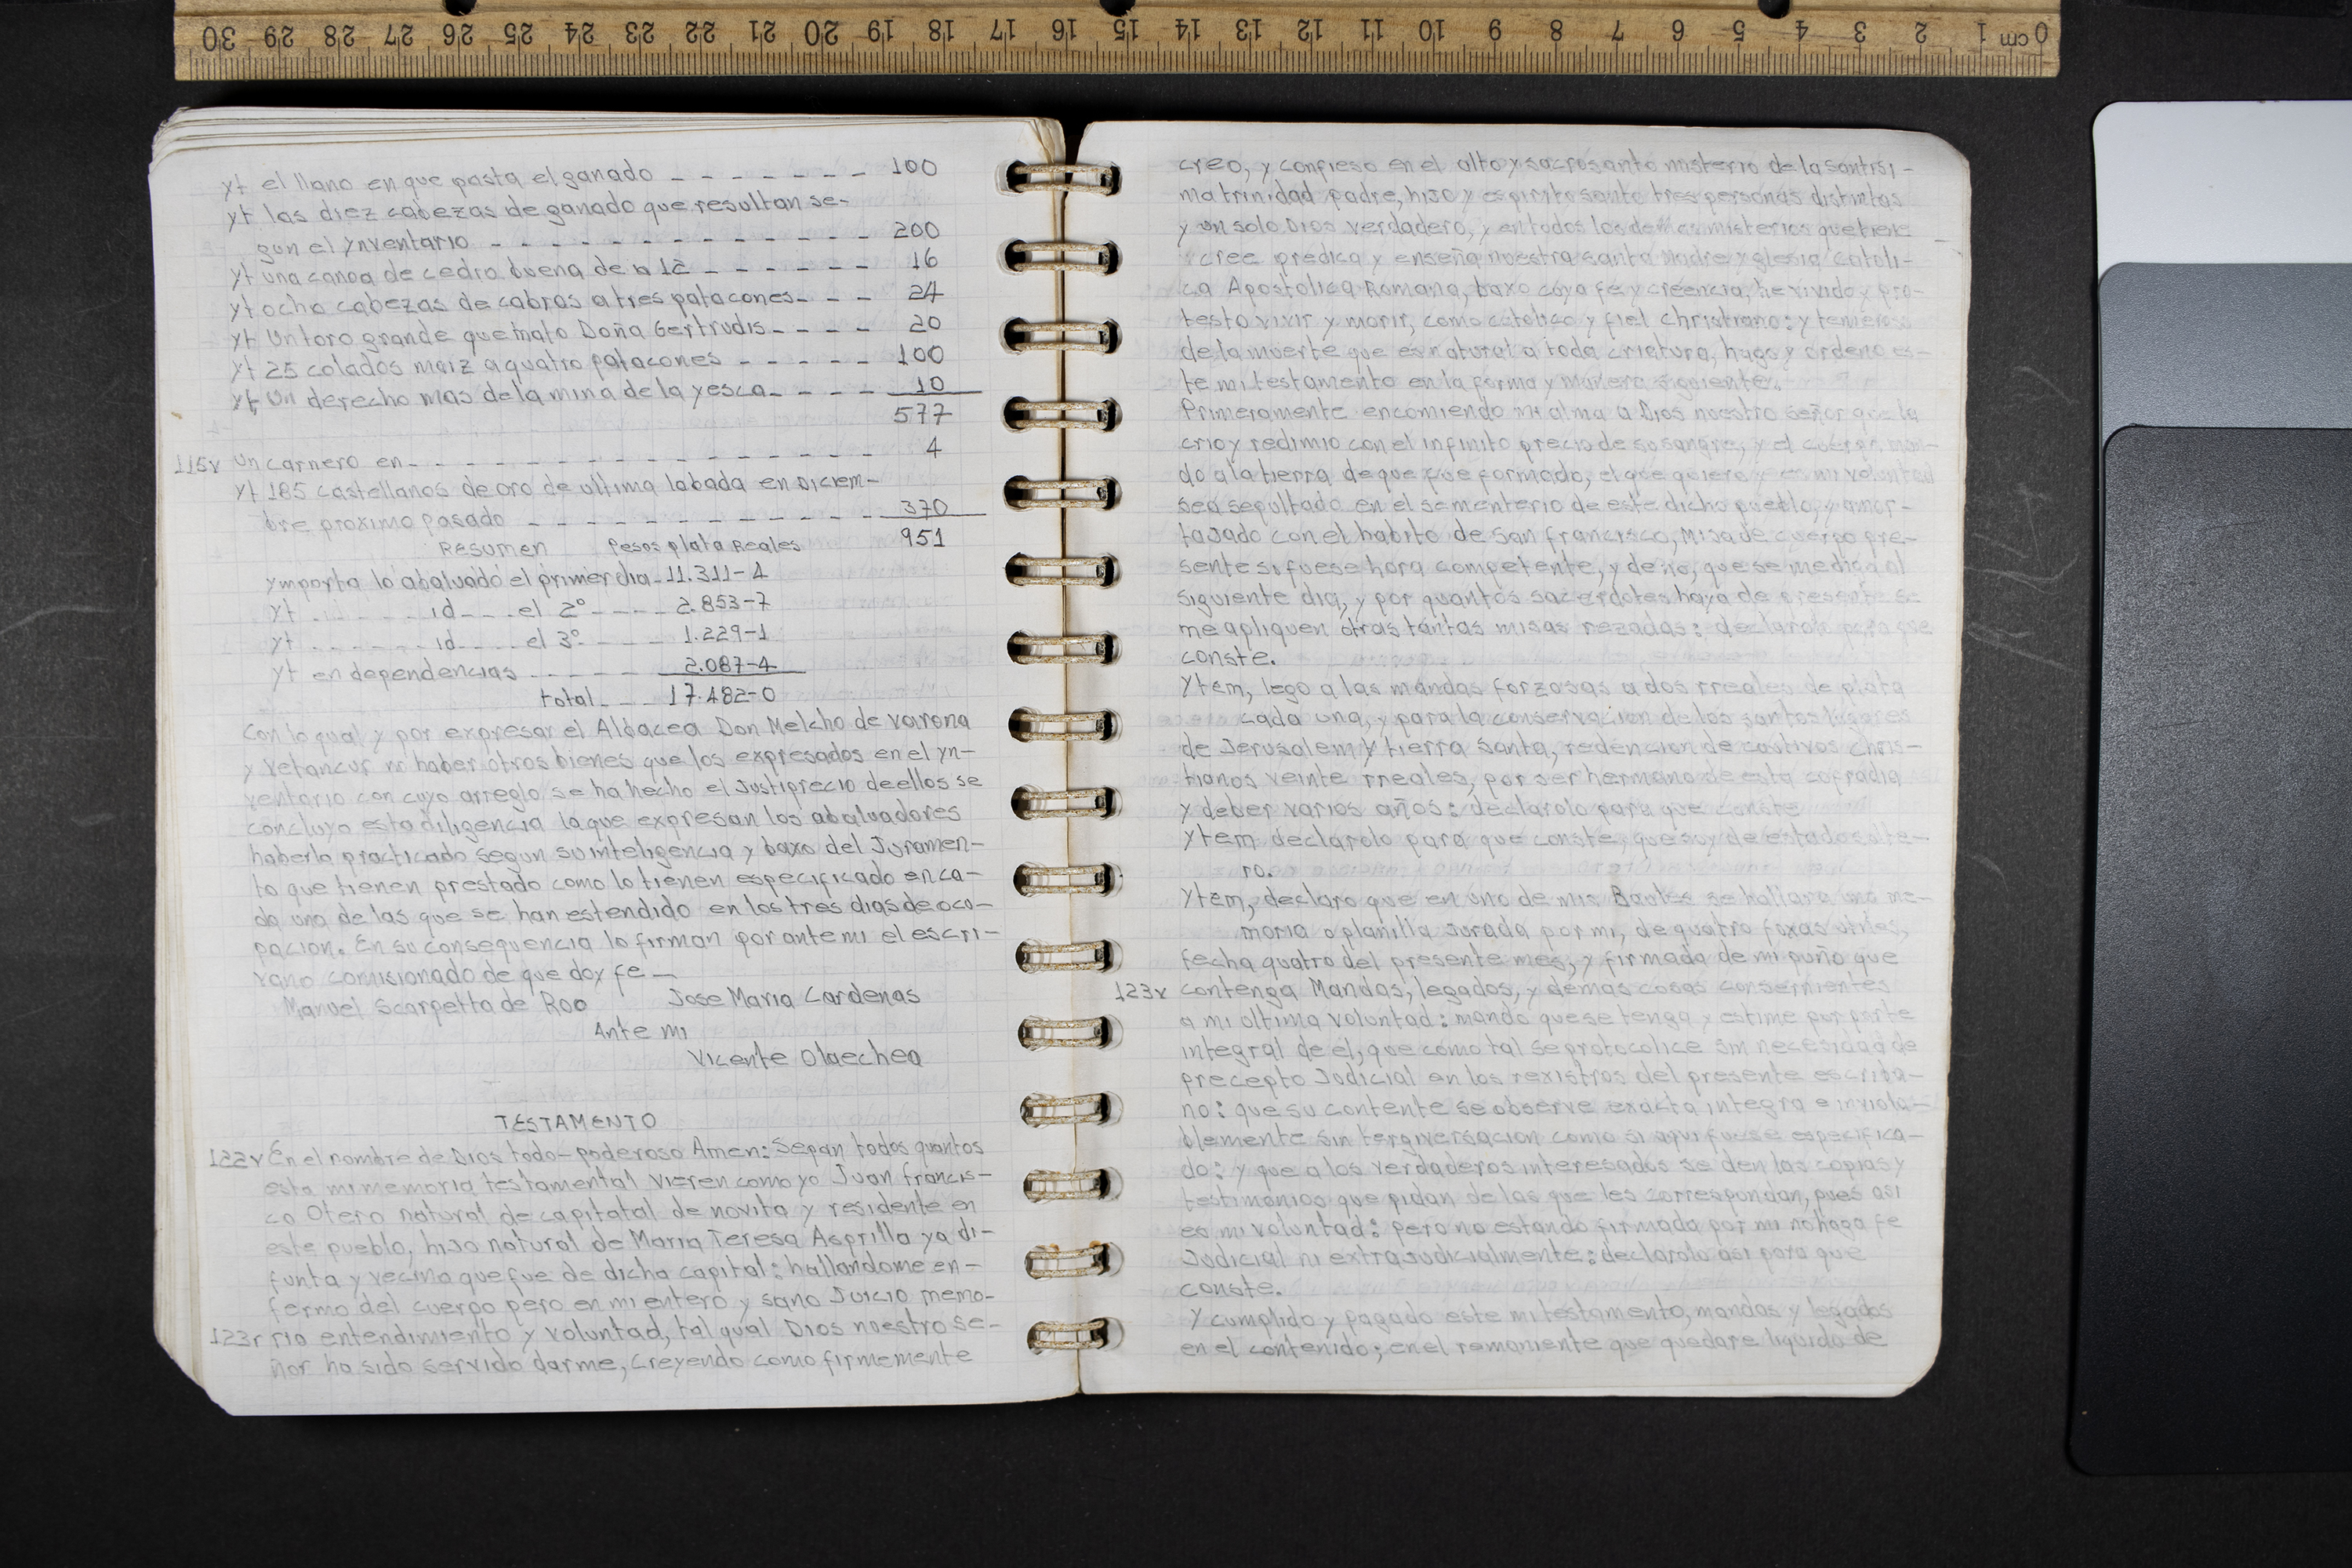 30 29 28 27 26 25 24 23 22 21 20 19 18 17 16 15 14 13 12 11 10 9 8 7 6 5 4 3 2 1 cm 0
yt el llano en que pasta el ganado _ _ _ _ _ _ _ 100
yt las diez cabezas de ganado que resultan se-
gun el ynventario _ _ _ _ _ _ _ _ _ _ _ _ _ 200
yt una canoa de cedro buena de a 12 _ _ _ _ _ _ 16
yt ocho cabezas de cabras a tres patacones _ _ _ 24
yt Un toro grande que mato Doña Gertrudis _ _ _ _ 20
yt 25 colados maiz a quatro patacones _ _ _ _ _ 100
yt Un derecho mas de la mina de la yesca _ _ _ _ 10
577
115v un carnero en _ _ _ _ _ _ _ _ _ _ _ _ _ _ _ _ 4
yt 185 castellanos de oro de ultima labada en Diciem-
bre proximo pasado _ _ _ _ _ _ _ _ _ _ _ _ 370
Resumen Pesos plata Reales 951
ymporta lo abaluado el primer dia _ 11.311-4
yt _ _ _ _ _ id _ _ _ el 2º _ _ _ _ 2.853-7
yt _ _ _ _ _ id _ _ _ el 3º _ _ _ _ 1.229-1
yt en dependencias _ _ _ _ _ 2.087-4
total _ _ _ 17.482-0
Con lo qual y por expresar el Albacea Don Melcho de varona
y Vetancur no haber otros bienes que los expresados en el yn-
ventario con cuyo arreglo se ha hecho el Justiprecio de ellos se
concluyo esta diligencia la que expresan los abaluadores
haberla practicado segun su inteligencia y baxo del Juramen-
to que tienen prestado como lo tienen especificado en ca-
da una de las que se han estendido en los tres dias de ocu-
pacion. En su consequencia lo firman por ante mi el escri-
vano comisionado de que doy fe —
Manuel Scarpetta de Roo Jose Maria Cardenas
Ante mi
Vicente Olaechea
TESTAMENTO
122v En el nombre de Dios todo-poderoso Amen: Sepan todos quantos
esta mi memoria testamental vieren como yo Juan francis-
co Otero natural de capitatal de novita y residente en
este pueblo, hijo natural de Maria Teresa Asprilla ya di-
funta y vecina que fue de dicha capital: hallandome en-
fermo del cuerpo pero en mi entero y sano Juicio memo-
123r ria entendimiento y voluntad, tal qual Dios nuestro se-
ñor ha sido servido darme, creyendo como firmemente
creo, y confieso en el alto y sacrosanto misterio de la santisi-
ma trinidad padre, hijo y espirito santo tres personas distintas
y un solo Dios verdadero, y en todos los demas misterios que tiene
cree predica y enseña nuestra santa Madre yglesia catoli-
ca Apostolica Romana, baxo cuya fe y creencia, he vivido y pro-
testo vivir y morir, como catolico y fiel christiano: y temeroso
de la muerte que es natural a toda criatura, hago y ordeno es-
te mi testamento en la forma y manera siguiente.
Primeramente encomiendo mi alma a Dios nuestro señor que la
crio y redimio con el infinito precio de su sangre, y el cuerpo man-
do a la tierra de que fue formado, el que quiero y es mi voluntad
sea sepultado en el sementerio de este dicho pueblo, y amor-
tajado con el habito de San francisco, Misa de cuerpo pre-
sente si fuese hora competente, y de no, que se me diga al
siguiente dia, y por quantos sacerdotes haya de presente se
me apliquen otras tantas misas rezadas: declarolo para que
conste.
Ytem, lego a las mandas forzosas a dos rreales de plata
cada una, y para la conservacion de los santos lugares
de Jerusalem y tierra santa, redencion de cautivos chris-
tianos veinte rreales, por ser hermano de esta cofradia
y deber varios años: declarolo para que conste
Ytem declarolo para que conste, que soy de estado solte-
ro.
Ytem, declaro que en uno de mis Baules se hallara una me-
moria o planilla Jurada por mi, de quatro foxas utiles,
fecha quatro del presente mes, y firmada de mi puño que
123v contenga Mandas, legados, y demas cosas consernientes
a mi ultima voluntad: mando que se tenga y estime por parte
integral de el, que como tal se protocolice sin necesidad de
precepto Judicial en los rexistros del presente escriba-
no: que su contente se observe exacta integra e inviola-
blemente sin tergiversacion como si aqui fuese especifica-
do: y que a los verdaderos interesados se den las copias y
testimonios que pidan de las que les correspondan, pues asi
es mi voluntad: pero no estando firmada por mi no haga fe
Judicial ni extrajudicialmente: declarolo asi para que
conste.
Y cumplido y pagado este mi testamento, mandas y legados
en el contenido; en el remaniente que quedare liquido de